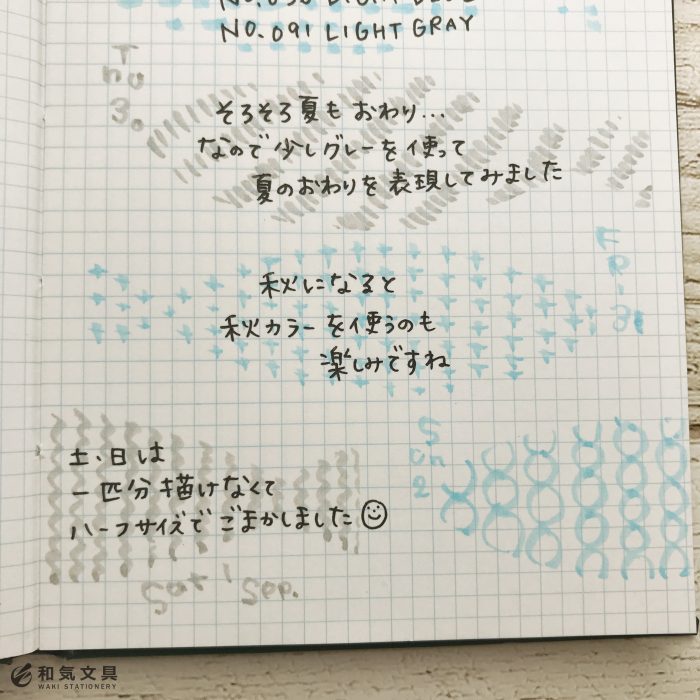 NO.091 LIGHT GRAY
Thu
3.
そろそろ夏もおわり...
なので少しグレーを使って
夏のおわりを表現してみました
Fri.
秋になると
秋カラーを使うのも
楽しみですね
Sun
2
土、日は
一匹分描けなくて
ハーフサイズでごまかしました
Sat, Sep.
和気文具
WAKI STATIONERY